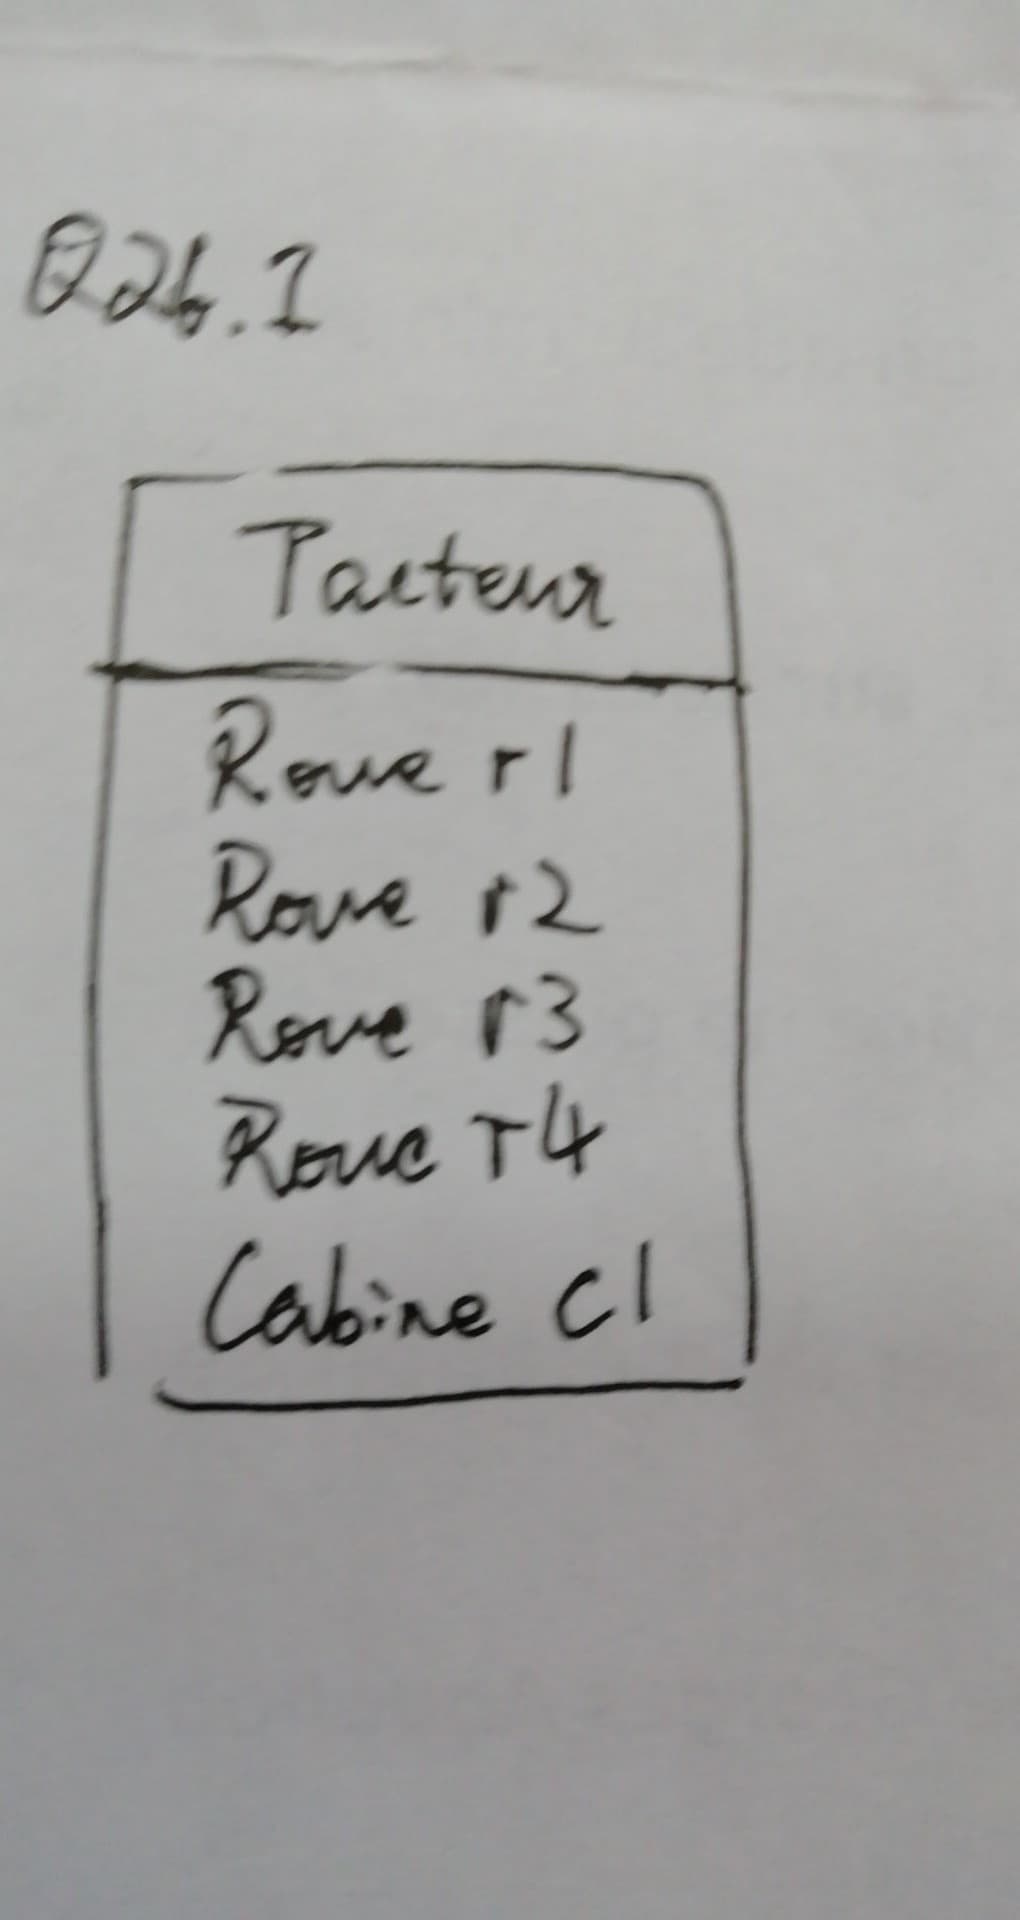 Q26.1
Tacteur
Roue r1
Roue r2
Roue r3
Roue r4
Cabine c1